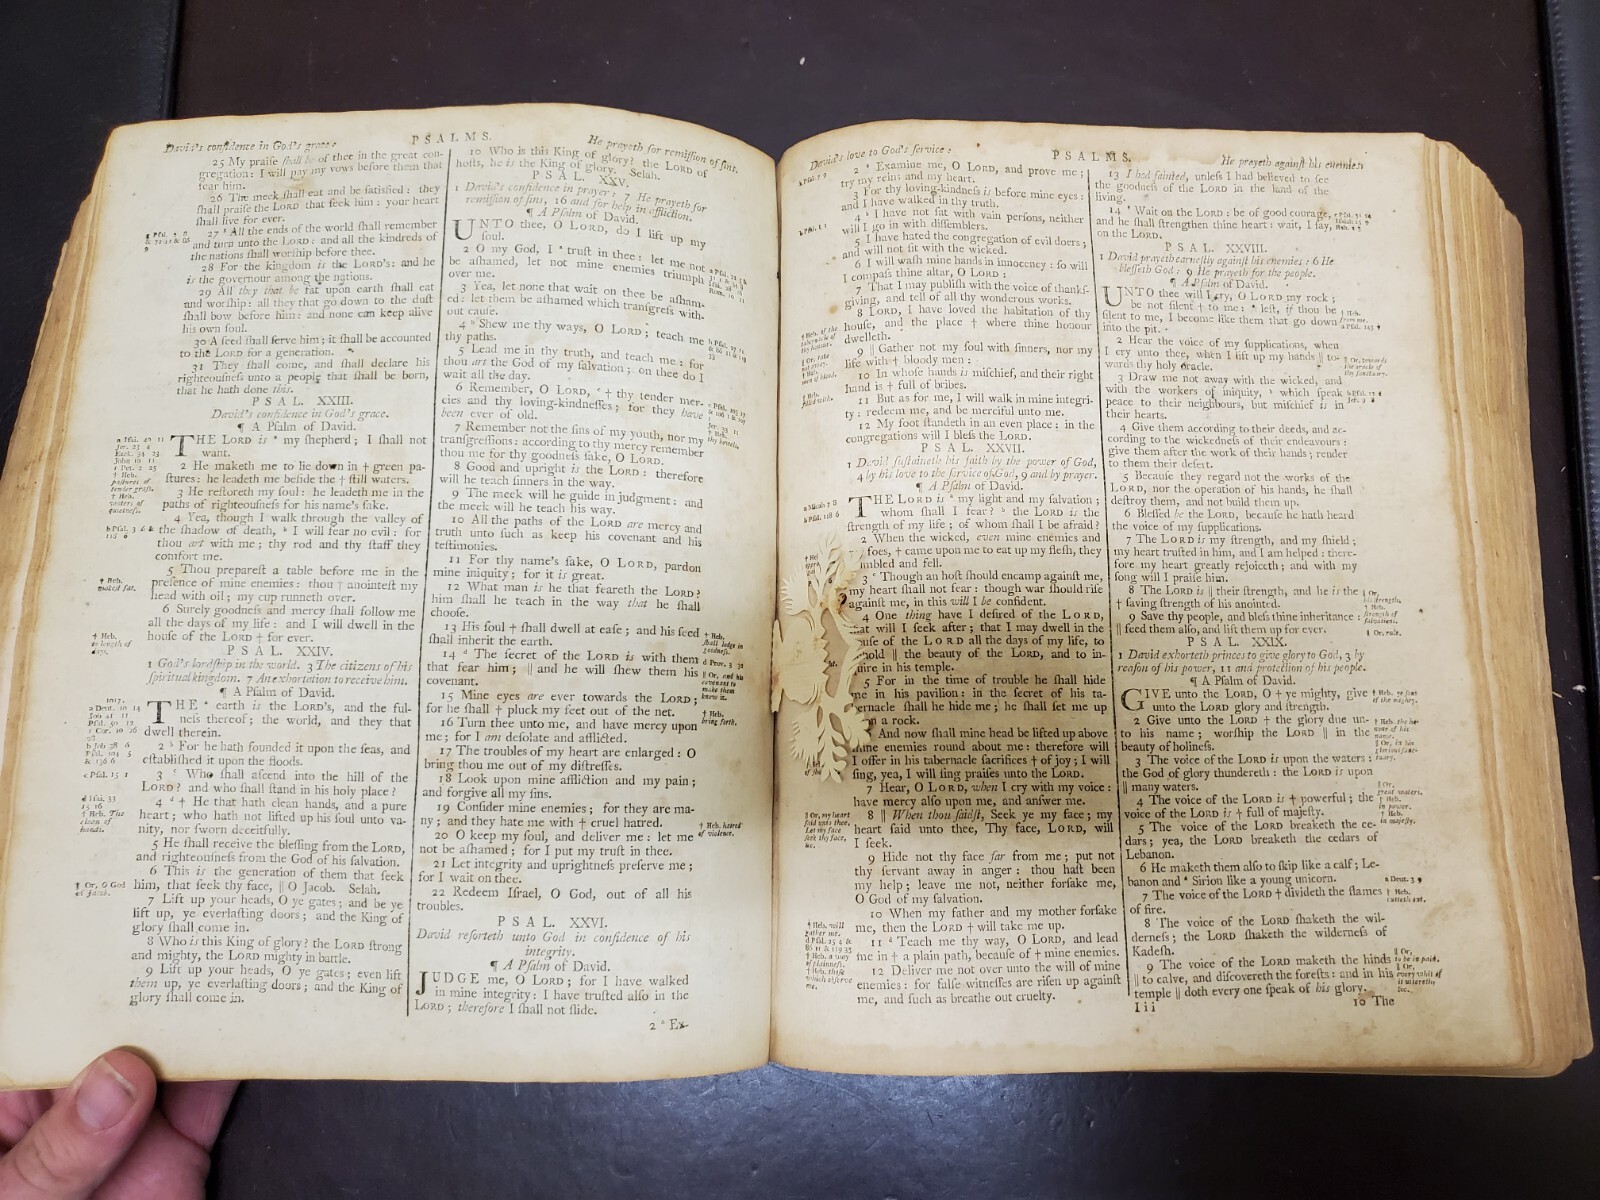 David's confidence in God's grace:
PSALMS.
He prayeth for remission of sins.
25 My praiſe ſhall be of thee in the great con-
gregation: I will pay my vows before them that
fear him.
26 The meek ſhall eat and be ſatisfied: they
ſhall praiſe the LORD that ſeek him: your heart
ſhall live for ever.
27 All the ends of the world ſhall remember
and turn unto the LORD: and all the kindreds of
the nations ſhall worſhip before thee.
28 For the kingdom is the LORD's: and he
is the governour among the nations.
29 All they that be fat upon earth ſhall eat
and worſhip: all they that go down to the duſt
ſhall bow before him: and none can keep alive
his own ſoul.
30 A ſeed ſhall ſerve him; it ſhall be accounted
to the LORD for a generation.
31 They ſhall come, and ſhall declare his
righteouſneſs unto a people that ſhall be born,
that he hath done this.
PSAL. XXIII.
David's confidence in God's grace.
¶ A Pſalm of David.
THE LORD is ᵃ my ſhepherd; I ſhall not
want.
2 He maketh me to lie down in † green pa-
ſtures: he leadeth me beſide the † ſtill waters.
3 He reſtoreth my ſoul: he leadeth me in the
paths of righteouſneſs for his name's ſake.
4 Yea, though I walk through the valley of
the ſhadow of death, ᵇ I will fear no evil: for
thou art with me; thy rod and thy ſtaff they
comfort me.
5 Thou prepareſt a table before me in the
preſence of mine enemies: thou † anointeſt my
head with oil; my cup runneth over.
6 Surely goodneſs and mercy ſhall follow me
all the days of my life: and I will dwell in the
houſe of the LORD † for ever.
PSAL. XXIV.
1 God's lordſhip in the world. 3 The citizens of his
ſpiritual kingdom. 7 An exhortation to receive him.
¶ A Pſalm of David.
THE ᵃ earth is the LORD's, and the ful-
neſs thereof; the world, and they that
dwell therein.
2 ᵇ For he hath founded it upon the ſeas, and
eſtabliſhed it upon the floods.
3 ᶜ Who ſhall aſcend into the hill of the
LORD? and who ſhall ſtand in his holy place?
4 ᵈ † He that hath clean hands, and a pure
heart; who hath not lifted up his ſoul unto va-
nity, nor ſworn deceitfully.
5 He ſhall receive the bleſſing from the LORD,
and righteouſneſs from the God of his ſalvation.
6 This is the generation of them that ſeek
him, that ſeek thy face, ‖ O Jacob. Selah.
7 Lift up your heads, O ye gates; and be ye
lift up, ye everlaſting doors; and the King of
glory ſhall come in.
8 Who is this King of glory? the LORD ſtrong
and mighty, the LORD mighty in battle.
9 Lift up your heads, O ye gates; even lift
them up, ye everlaſting doors; and the King of
glory ſhall come in.
10 Who is this King of glory? the LORD of
hoſts, he is the King of glory. Selah.
PSAL. XXV.
1 David's confidence in prayer: 7 He prayeth for
remiſſion of ſins, 16 and for help in affliction.
¶ A Pſalm of David.
UNTO thee, O LORD, do I lift up my
ſoul.
2 O my God, I ᵃ truſt in thee: let me not
be aſhamed, let not mine enemies triumph
over me.
3 Yea, let none that wait on thee be aſham-
ed: let them be aſhamed which tranſgreſs with-
out cauſe.
4 ᵇ Shew me thy ways, O LORD; teach me
thy paths.
5 Lead me in thy truth, and teach me: for
thou art the God of my ſalvation; on thee do I
wait all the day.
6 Remember, O LORD, ᶜ † thy tender mer-
cies and thy loving-kindneſſes; for they have
been ever of old.
7 Remember not the ſins of my youth, nor my
tranſgreſſions: according to thy mercy remember
thou me for thy goodneſs ſake, O LORD.
8 Good and upright is the LORD: therefore
will he teach ſinners in the way.
9 The meek will he guide in judgment: and
the meek will he teach his way.
10 All the paths of the LORD are mercy and
truth unto ſuch as keep his covenant and his
teſtimonies.
11 For thy name's ſake, O LORD, pardon
mine iniquity; for it is great.
12 What man is he that feareth the LORD?
him ſhall he teach in the way that he ſhall
chooſe.
13 His ſoul † ſhall dwell at eaſe; and his ſeed
ſhall inherit the earth.
14 ᵈ The ſecret of the LORD is with them
that fear him; ‖ and he will ſhew them his
covenant.
15 Mine eyes are ever towards the LORD;
for he ſhall † pluck my feet out of the net.
16 Turn thee unto me, and have mercy upon
me; for I am deſolate and afflicted.
17 The troubles of my heart are enlarged: O
bring thou me out of my diſtreſſes.
18 Look upon mine affliction and my pain;
and forgive all my ſins.
19 Conſider mine enemies; for they are ma-
ny; and they hate me with † cruel hatred.
20 O keep my ſoul, and deliver me: let me
not be aſhamed; for I put my truſt in thee.
21 Let integrity and uprightneſs preſerve me;
for I wait on thee.
22 Redeem Iſrael, O God, out of all his
troubles.
PSAL. XXVI.
David reſorteth unto God in confidence of his
integrity.
¶ A Pſalm of David.
JUDGE me, O LORD; for I have walked
in mine integrity: I have truſted alſo in the
LORD; therefore I ſhall not ſlide.
2 ᵃ Ex-
David's love to God's ſervice:
PSALMS.
He prayeth againſt his enemies
2 ᵃ Examine me, O LORD, and prove me;
try my reins and my heart.
3 For thy loving-kindneſs is before mine eyes:
and I have walked in thy truth.
4 ᵇ I have not ſat with vain perſons, neither
will I go in with diſſemblers.
5 I have hated the congregation of evil doers;
and will not ſit with the wicked.
6 I will waſh mine hands in innocency: ſo will
I compaſs thine altar, O LORD;
7 That I may publiſh with the voice of thankſ-
giving, and tell of all thy wonderous works.
8 LORD, I have loved the habitation of thy
houſe, and the place † where thine honour
dwelleth.
9 ‖ Gather not my ſoul with ſinners, nor my
life with † bloody men:
10 In whoſe hands is miſchief, and their right
hand is † full of bribes.
11 But as for me, I will walk in mine integri-
ty: redeem me, and be merciful unto me.
12 My foot ſtandeth in an even place: in the
congregations will I bleſs the LORD.
PSAL. XXVII.
1 David ſuſtaineth his faith by the power of God,
4 by his love to the ſervice of God, 9 and by prayer.
¶ A Pſalm of David.
THE LORD is ᵃ my light and my ſalvation;
whom ſhall I fear? ᵇ the LORD is the
ſtrength of my life; of whom ſhall I be afraid?
2 When the wicked, even mine enemies and
foes, † came upon me to eat up my fleſh, they
mbled and fell.
3 ᶜ Though an hoſt ſhould encamp againſt me,
my heart ſhall not fear: though war ſhould riſe
againſt me, in this will I be confident.
4 One thing have I deſired of the LORD,
at will I ſeek after; that I may dwell in the
uſe of the LORD all the days of my life, to
hold ‖ the beauty of the LORD, and to in-
ire in his temple.
5 For in the time of trouble he ſhall hide
me in his pavilion: in the ſecret of his ta-
ernacle ſhall he hide me; he ſhall ſet me up
n a rock.
And now ſhall mine head be lifted up above
ine enemies round about me: therefore will
I offer in his tabernacle ſacrifices † of joy; I will
ſing, yea, I will ſing praiſes unto the LORD.
7 Hear, O LORD, when I cry with my voice:
have mercy alſo upon me, and anſwer me.
8 ‖ When thou ſaidſt, Seek ye my face; my
heart ſaid unto thee, Thy face, LORD, will
I ſeek.
9 Hide not thy face far from me; put not
thy ſervant away in anger: thou haſt been
my help; leave me not, neither forſake me,
O God of my ſalvation.
10 When my father and my mother forſake
me, then the LORD † will take me up.
11 ᵈ Teach me thy way, O LORD, and lead
me in † a plain path, becauſe of † mine enemies.
12 Deliver me not over unto the will of mine
enemies: for falſe witneſſes are riſen up againſt
me, and ſuch as breathe out cruelty.
13 I had fainted, unleſs I had believed to ſee
the goodneſs of the LORD in the land of the
living.
14 ᵉ Wait on the LORD: be of good courage,
and he ſhall ſtrengthen thine heart: wait, I ſay,
on the LORD.
PSAL. XXVIII.
1 David prayeth earneſtly againſt his enemies: 6 He
bleſſeth God: 9 He prayeth for the people.
¶ A Pſalm of David.
UNTO thee will I cry, O LORD my rock;
be not ſilent † to me: ᵃ leſt, if thou be
ſilent to me, I become like them that go down
into the pit.
2 Hear the voice of my ſupplications, when
I cry unto thee, when I lift up my hands ‖ to-
wards thy holy oracle.
3 Draw me not away with the wicked, and
with the workers of iniquity, ᵇ which ſpeak
peace to their neighbours, but miſchief is in
their hearts.
4 Give them according to their deeds, and ac-
cording to the wickedneſs of their endeavours:
give them after the work of their hands; render
to them their deſert.
5 Becauſe they regard not the works of the
LORD, nor the operation of his hands, he ſhall
deſtroy them, and not build them up.
6 Bleſſed be the LORD, becauſe he hath heard
the voice of my ſupplications.
7 The LORD is my ſtrength, and my ſhield;
my heart truſted in him, and I am helped: there-
fore my heart greatly rejoiceth; and with my
ſong will I praiſe him.
8 The LORD is ‖ their ſtrength, and he is the
† ſaving ſtrength of his anointed.
9 Save thy people, and bleſs thine inheritance:
‖ feed them alſo, and lift them up for ever.
PSAL. XXIX.
1 David exhorteth princes to give glory to God, 3 by
reaſon of his power, 11 and protection of his people.
¶ A Pſalm of David.
GIVE unto the LORD, O † ye mighty, give
unto the LORD glory and ſtrength.
2 Give unto the LORD † the glory due un-
to his name; worſhip the LORD ‖ in the
beauty of holineſs.
3 The voice of the LORD is upon the waters:
the God of glory thundereth: the LORD is upon
‖ many waters.
4 The voice of the LORD is † powerful; the
voice of the LORD is † full of majeſty.
5 The voice of the LORD breaketh the ce-
dars; yea, the LORD breaketh the cedars of
Lebanon.
6 He maketh them alſo to ſkip like a calf; Le-
banon and ᵃ Sirion like a young unicorn.
7 The voice of the LORD † divideth the flames
of fire.
8 The voice of the LORD ſhaketh the wil-
derneſs; the LORD ſhaketh the wilderneſs of
Kadeſh.
9 The voice of the LORD maketh the hinds
‖ to calve, and diſcovereth the foreſts: and in his
temple ‖ doth every one ſpeak of his glory.
Iii
10 The